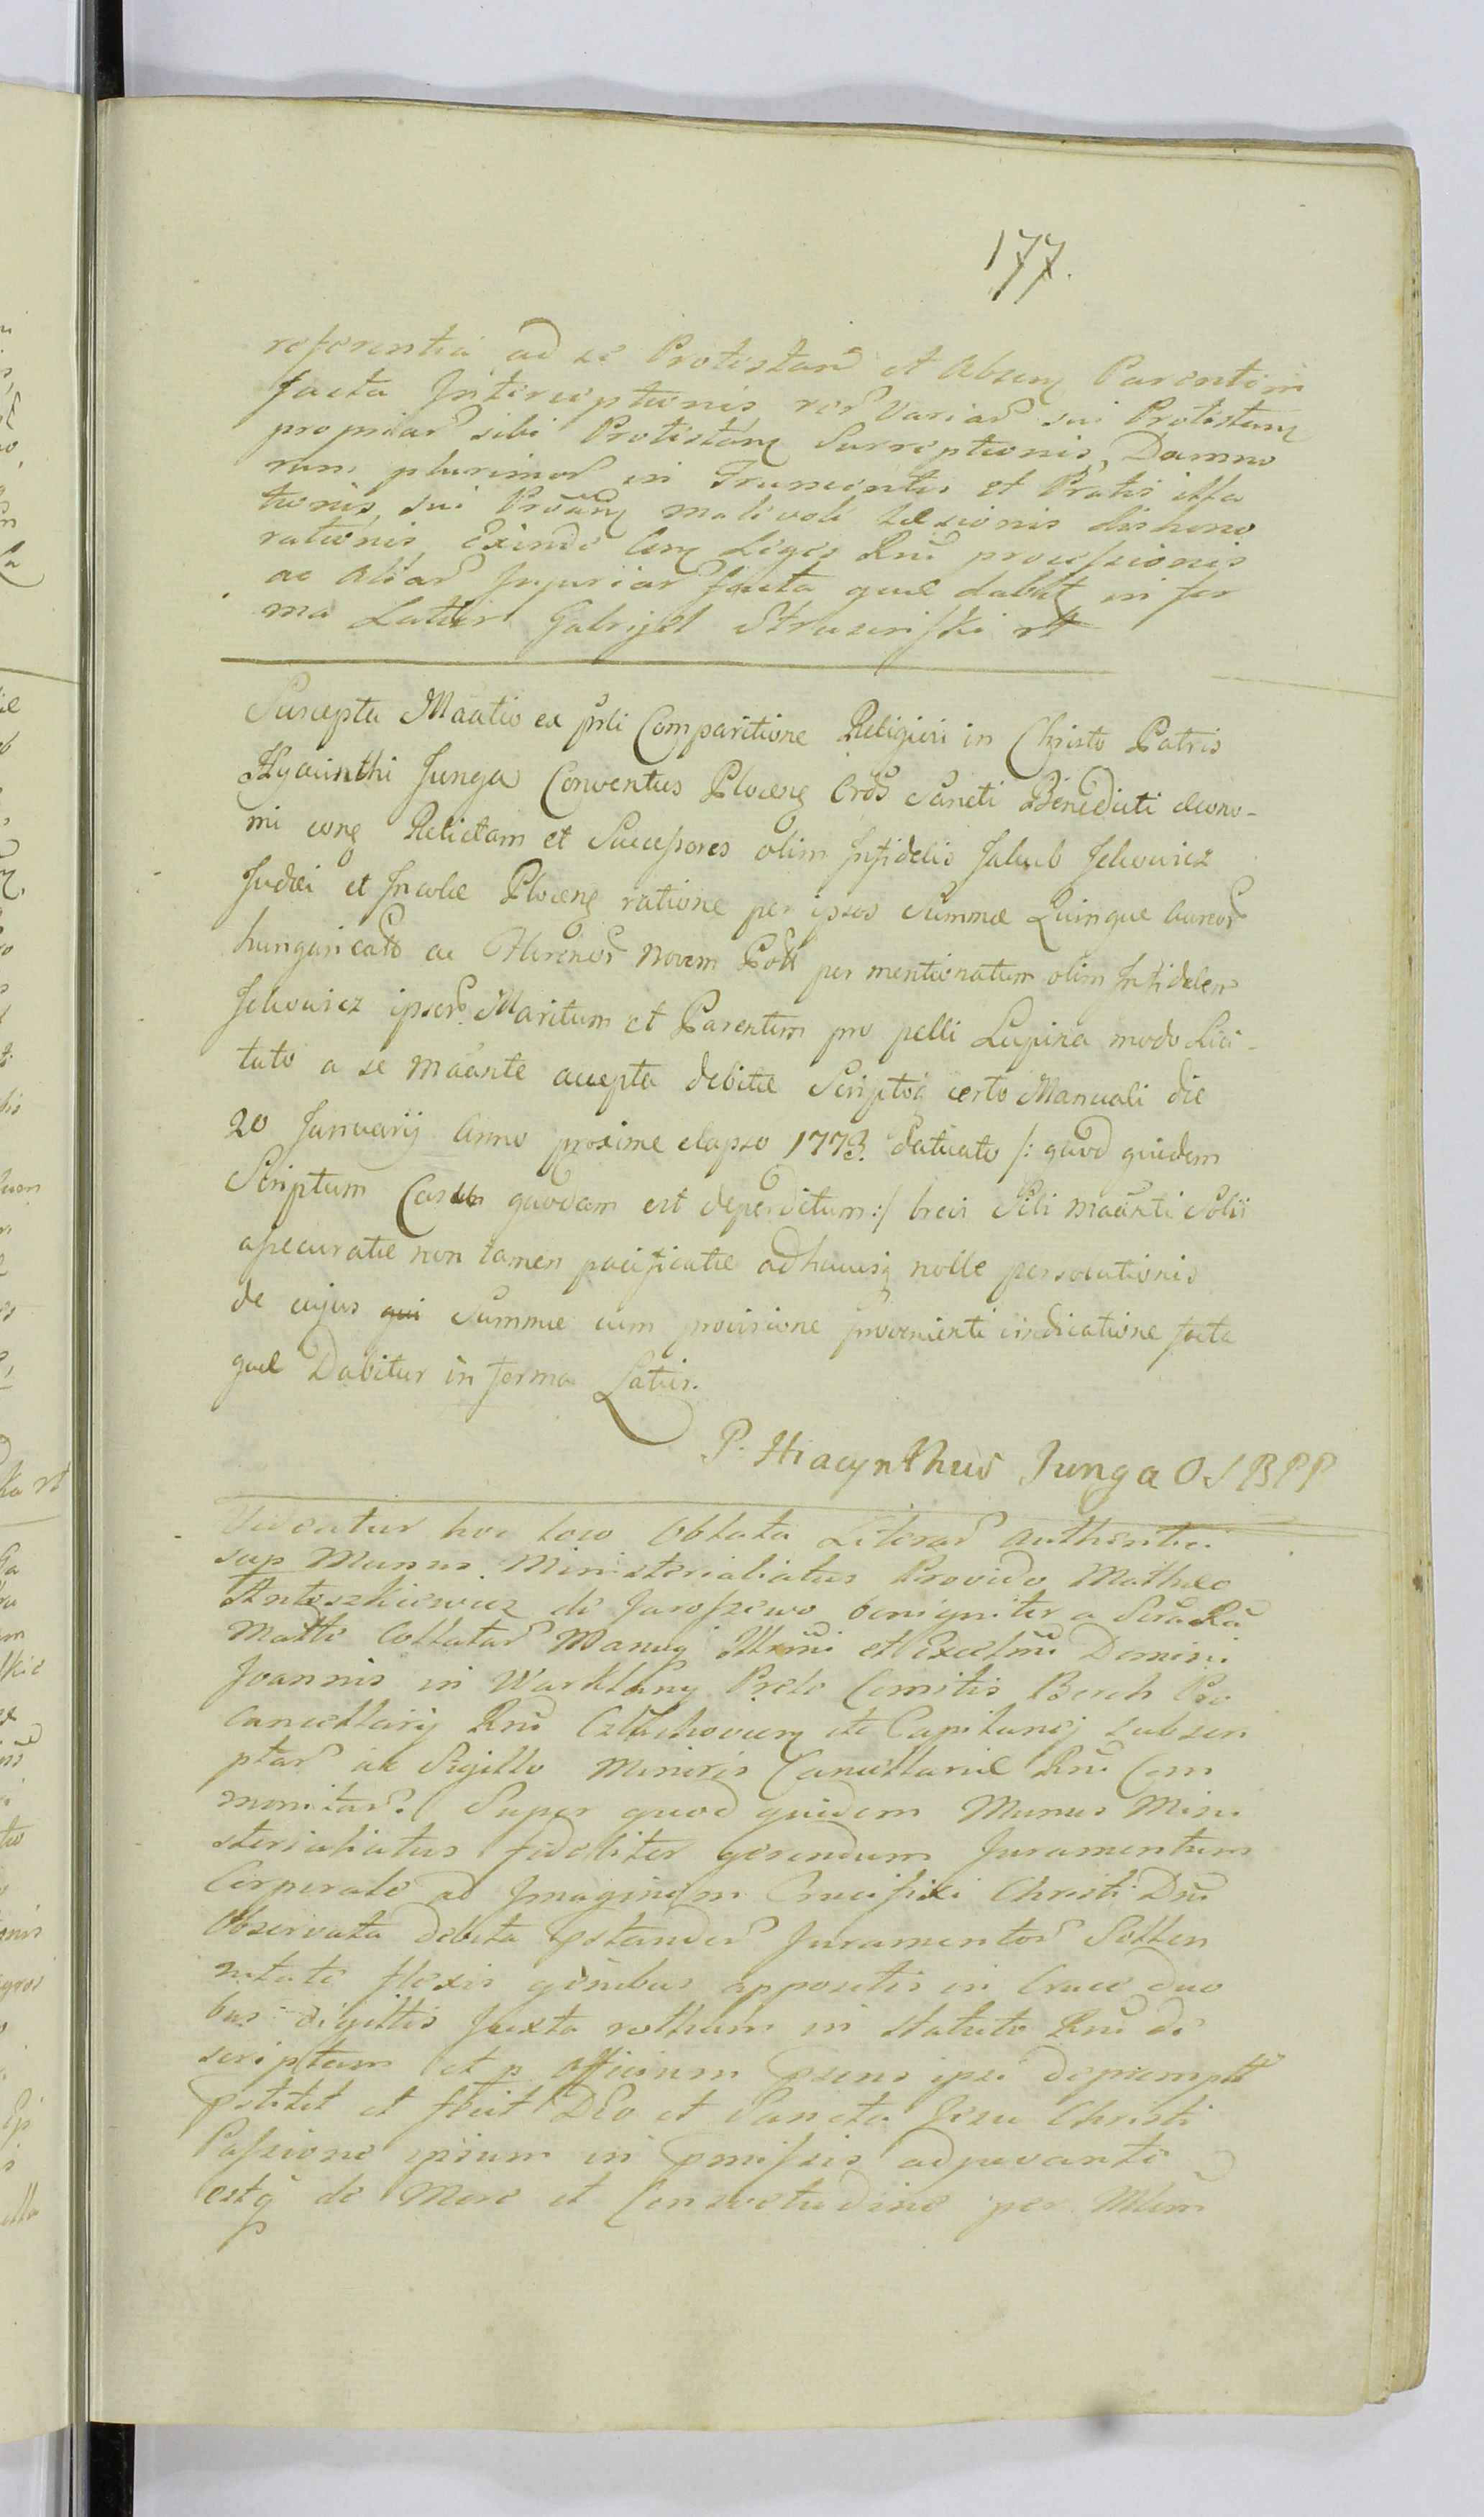 177.
referentia ad se Protestand et Absenq Parentem
facta Interceptionis rer Variar sui Protestanq
propriar sibi Protestanq Surreptionis, Damno
rum plurimor in Frumentis et Pratis illa
tionis, sui Proanq malevoli Læsionis dishono
rationis, Exinde Conq Leges Rni processionis
ac Aliar Injuriar facta quæ dabit in for
ma Latiori Gabryel Struzinski rtt
Suscepta Maatio ex psli Comparitione Religiosi in Christo Patris
Hyacinthi Junga Conventus Plocenq Ords Sancti Benedicti Œcono-
mi conq Relictam et Successores olim Infidelis Jakub Jelowicz
Judæi et Incolæ Plocenq ratione per ipsos Summæ Quinque Aureor
hungaricall ac Florenor Novem Poll per mentionatum olim Infidelem
Jelowicz ipsor Maritum et Parentem pro pelli Lupina modo Lici-
tato a se Maante accepta debitæ Scriptoq certo Manuali die
20 Januarij Anno proxime elapso 1773. datuato /: quod quidem
Scriptum Casu quodam est deperditum :/ brevi Sibi Maanti Solvi
assecuratæ non tamen pacificatæ adhucusq nolle persolutionis
de cujus qui Summæ cum provisione provenienti vindicatione facta
quæ Dabitur in forma Latiori.
P. Hiacynthus Junga OSBPP
Videatur hoc loco Oblata Literar Authentic
sup Munus Ministerialiatus Provido Mathæo
Antoszkiewicz de Jaroszewo benigniter a Sera Ra
Matte Collatar Manuq Illrmi et Excelmi Domini
Joannis in Warklany Prele Comitis Borch Pro
Cancellarij Rni Człuchovienq etc Capitanej subscri
ptar ac Sigillo Minoris Cancellariæ Rni Com
munitar. Super quod quidem Munus Mini
sterialiatus fideliter gerendum Juramentum
Corporale ad Imaginem Crucifixi Christi Dni
Observata debita pstandor Juramentor Sollen
nitate flexis genibus appositis in Cruce duo
bus digittis Juxta rotham in statuto Rni de
scriptam et p Officium psens ipsi depromptt
pstitit et fecit DEo et Sancta Jesu Christi
Passione ipsum in pmissis adjuvante
estq de More et Consvetudine per Mlem